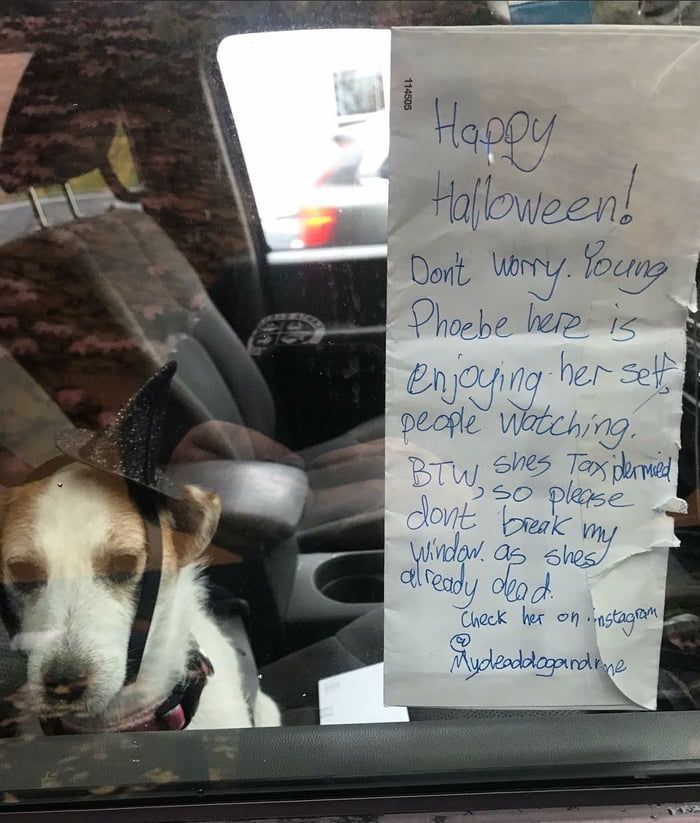 114505
Happy
Halloween!
Don't worry. Young
Phoebe here is
enjoying her self,
people watching.
BTW, shes Taxidermied
, so please
dont break my
window. as shes
already dead.
Check her on instagram
@
Mydeaddogandme